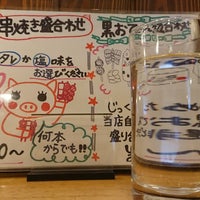 串焼き盛合わせ
タレか塩味を
お選びください
何本
からでも!!
0〜
黒おでん
合わせ
じっく
当店自
盛り